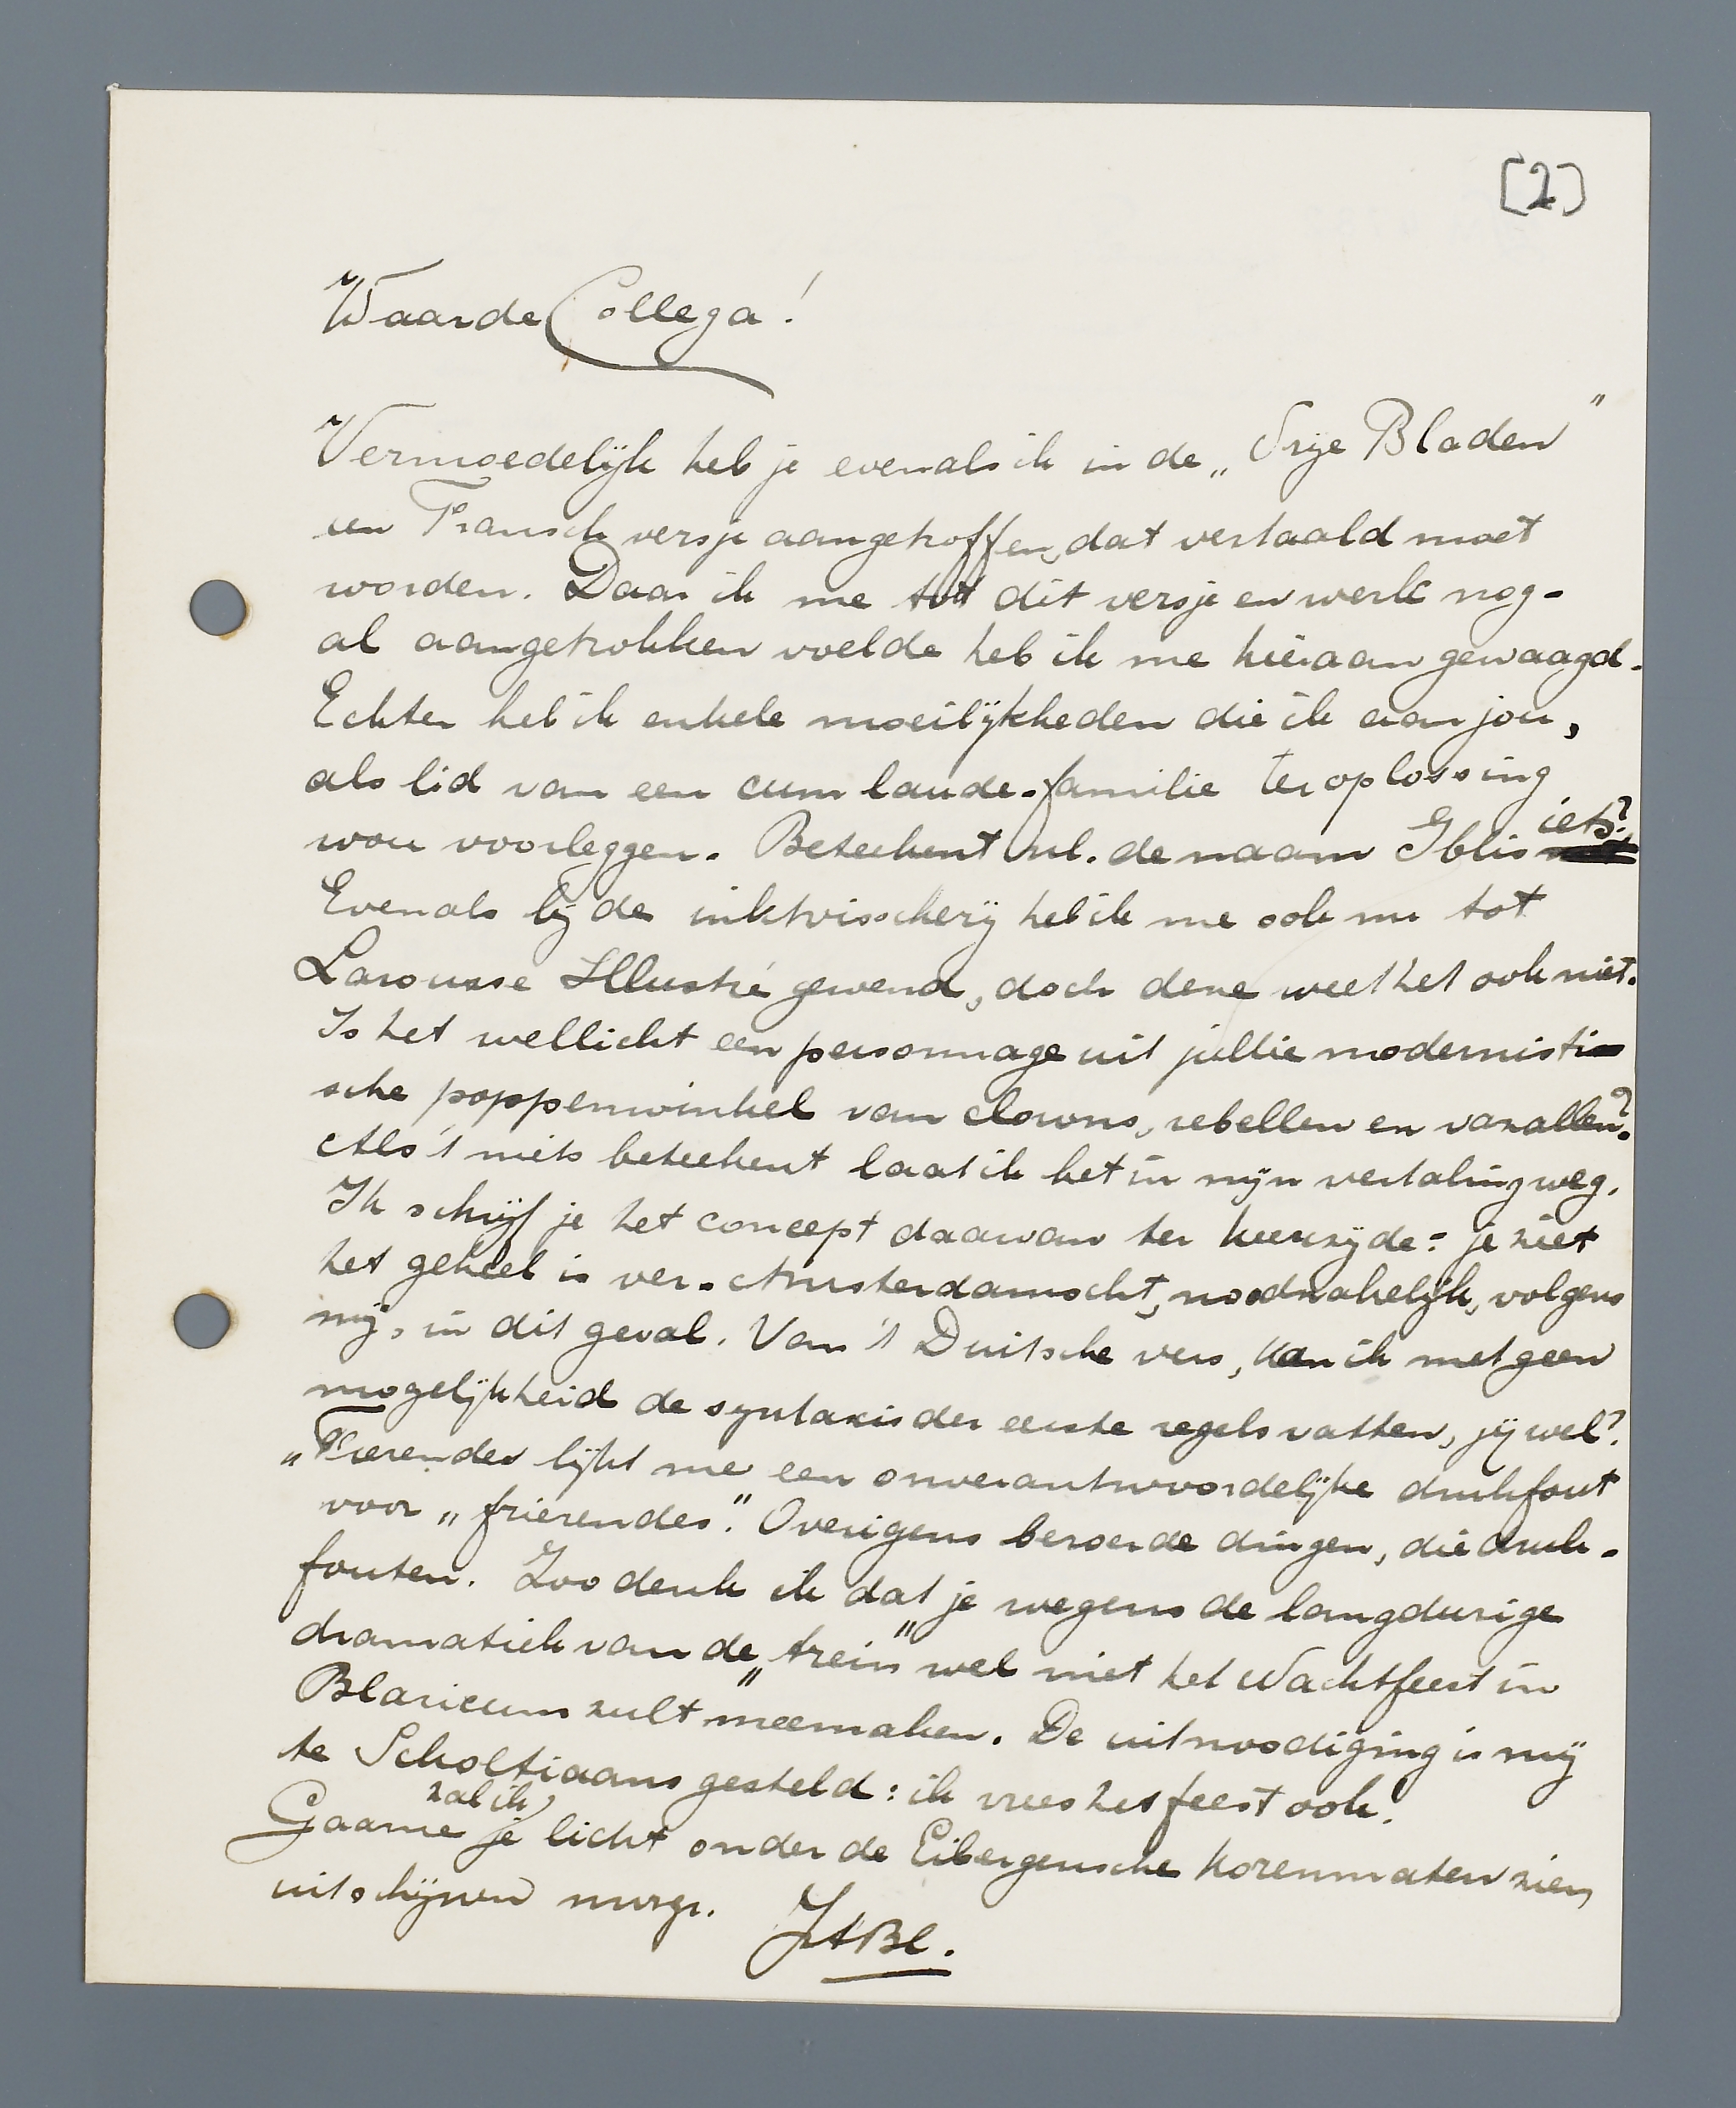 [2]
Waarde Collega!
Vermoedelijk heb je evenals ik in de „Vrije Bladen"
een Fransch versje aangetroffen, dat vertaald moet
worden. Daar ik me tot dit versje en werk nog-
al aangetrokken voelde heb ik me hieraan gewaagd.
Echter heb ik enkele moeilijkheden die ik aan jou,
als lid van een cum laude-familie ter oplossing
wou voorleggen. Beteekent nl. de naam Iblis iets?
Evenals bij de inktvisscherij heb ik me ook nu tot
Larousse Illustré gewend, doch deze weet het ook niet.
Is het wellicht een personnage uit jullie modernisti-
sche poppenwinkel van clowns, rebellen en vazallen?
Als 't niets beteekent laat ik het in mijn vertaling weg.
Ik schrijf je het concept daarvan ter keerzijde: je ziet
het geheel is ver-Amsterdamscht, noodzakelijk, volgens
mij, in dit geval. Van 't Duitsche vers, kan ik met geen
mogelijkheid de syntaxis der eerste regels vatten, jij wel?
„Fierendes lijkt me een onverantwoordelijke drukfout
voor „frierendes". Overigens beroerde dingen, die druk-
fouten. Zoo denk ik dat je wegens de langdurige
dramatiek van de „trein" wel niet het Wachtfeest in
Blaricum zult meemaken. De uitnoodiging is mij
te Scholtiaans gesteld: ik vrees het feest ook.
Gaarne zal ik je licht onder de Eibergensche korenmaten zien
uitschijnen morgn.
JABl.